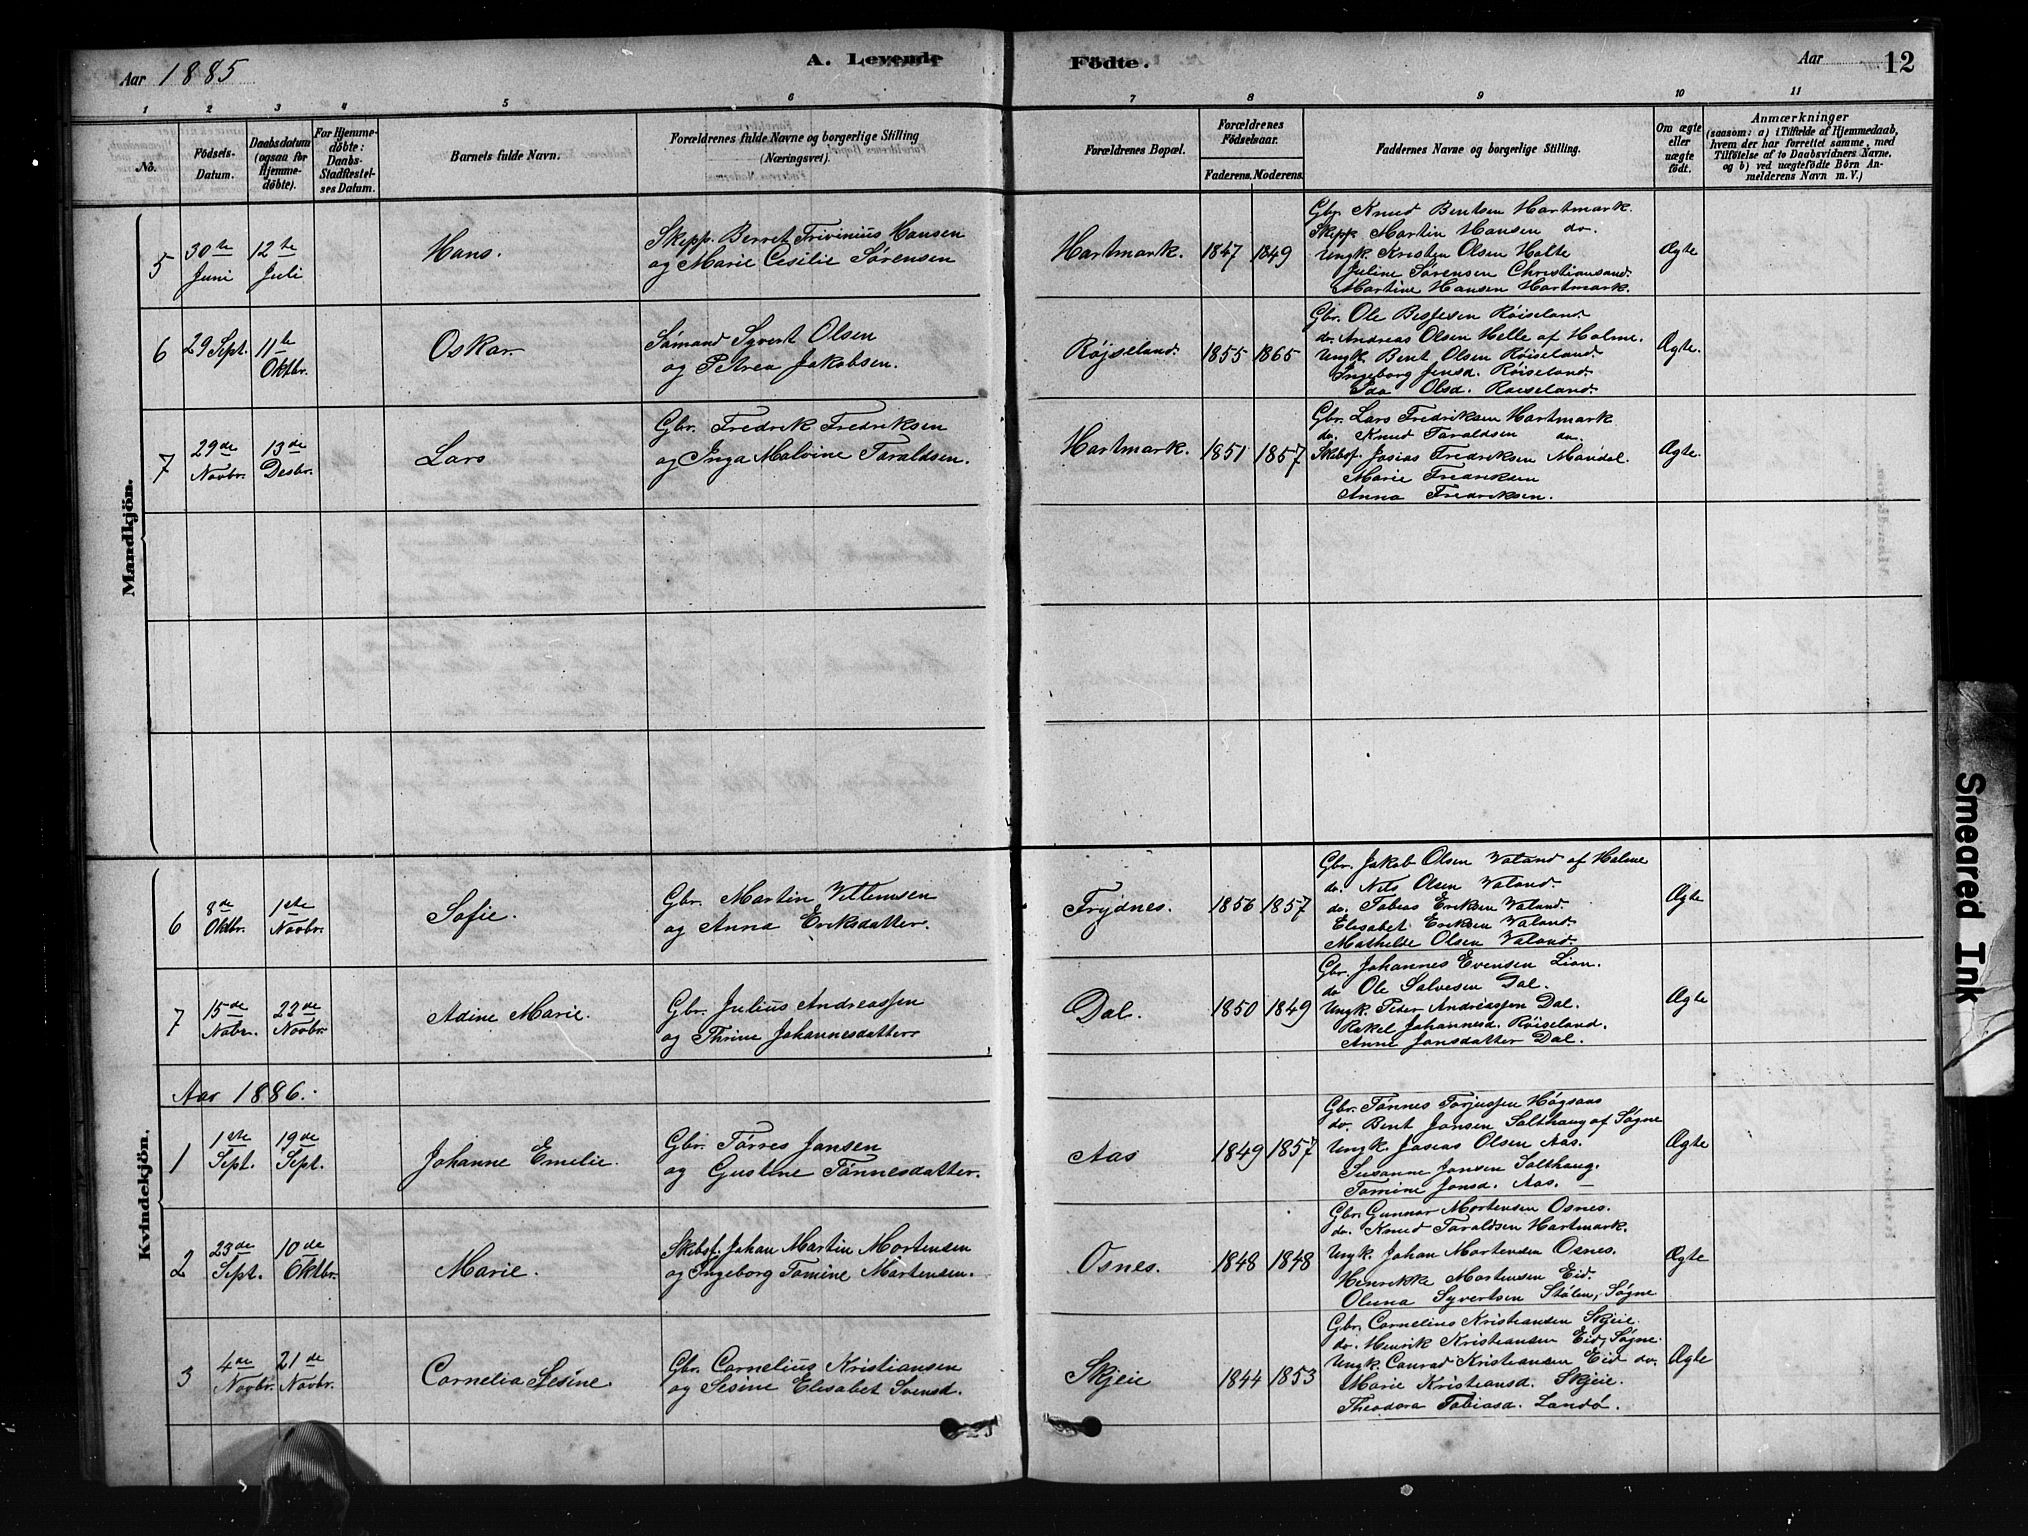 Aar 1885
A. Levende Födte.
Aar 12
1 2 3 4 5 6 7 8 9 10 11
No.
Födsels-Datum.
Daabsdatum (ogsaa for Hjemmedöbte).
For Hjemmedöbte: Daabs-Stadfæstelses Datum.
Barnets fulde Navn.
Forældrenes fulde Navne og borgerlige Stilling (Næringsvei).
Forældrenes Bopæl.
Forældrenes Födselsaar.
Faderens. Moderens.
Faddernes Navne og borgerlige Stilling.
Om ægte eller uægte födt.
Anmærkninger
(saasom: a) i Tilfælde af Hjemmedaab, hvem der har forrettet samme, med Tilföielse af to Daabsvidners Navne, og b) ved uægtefödte Börn Anmelderens Navn m. V.)
Mandkjön.
5
30te Juni
12te Juli
Hans.
Skepp. Berret Trivinius Hansen
og Marie Cesilie Sørensen
Hartmark. 1847 1849
Gbr. Knud Bentsen Hartmark.
Skepp Martin Hansen do.
Ungk. Kristen Olsen Holte
Juline Sørensen Christiansand.
Martine Hansen Hartmark.
Ægte
6
29 Sept.
11te Oktbr.
Oskar.
Sømand Syvert Olsen
og Petrea Jakobsen.
Røjseland. 1855 1865
Gbr. Ole Besjesen Røiseland.
do. Andreas Olsen Helle af Halme.
Ungk. Bent Olsen Røiseland.
Ingeborg Jensd. Røiseland.
Olsd. Røiseland.
Ægte.
7
29de Novbr.
13de Desbr.
Lars
Gbr. Fredrik Fredriksen
og Inga Malvine Taraldsen.
Hartmark. 1851 1857
Gbr. Lars Fredriksen Hartmark
do. Knud Taraldsen do.
Skibsf. Josias Fredriksen Mandal.
Marie Fredriksen
Anna Fredriksen.
Ægte.
Kvindekjön.
6
8de Oktbr.
1ste Novbr.
Sofie.
Gbr. Martin Villemsen
og Anna Eriksdatter.
Frydnes. 1856 1857
Gbr. Jakob Olsen Valand af Halme
do. Nils Olsen Valand.
do. Tobias Eriksen Valand.
Elisabet Eriksen Valand.
Mathilde Olsen Valand.
Ægte
7
15de Nobr.
22de Novbr.
Adine Marie.
Gbr. Julius Andreassen
og Thrine Johannesdatter
Dal. 1850 1849
Gbr. Johannes Evensen Lian.
do Ole Salvesen Dal.
Ungk. Peder Andreassen Dal.
Rakel Johannesd. Røiseland.
Anne Jansdatter Dal.
Ægte
Aar 1886.
1
1ste Sept.
19de Sept.
Johanne Emelie.
Gbr. Tørres Jansen
og Gustine Tønnesdatter.
Aas 1849 1857
Gbr. Tønnes Torjussen Høgsaas
do. Bent Jansen Salthaug af Søgne
Ungk. Josias Olsen Aas.
Susanne Jansen Salthaug.
Tomine Jonsd. Aas. —
Ægte
2
23de Sept.
10de Oktbr.
Marie.
Skibsf. Johan Martin Mortensen
og Ingeborg Tomine Martensen.
Osnes. 1848 1848
Gbr. Gunnar Mortensen Osnes.
do. Knud Taraldsen Hartmark.
Ungk. Johan Mortensen Osnes.
Henrikke Mortensen Eid.
Oluna Syvertsen Stølen, Søgne
Ægte
3
4de Novbr.
21de Novbr.
Cornelia Sesine.
Gbr. Cornelius Kristiansen
og Sesine Elisabet Svensd.
Skjeie 1844 1853
Gbr. Cornelius Kristiansen Skjeie.
do. Henrik Kristiansen Eid, Søgne.
Ungk. Conrad Kristiansen Eid do.
Marie Kristiansd. Skjeie.
Theodora Tobiasd. Landø.
Ægte
Smeared Ink